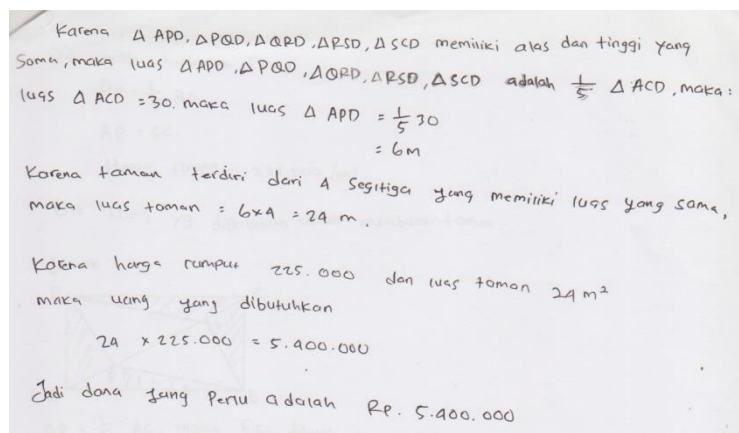 Karena Δ APD, Δ PQD, Δ QRD, Δ RSD, Δ SCD memiliki alas dan tinggi yang
Sama, maka luas Δ APD, Δ PQD, Δ QRD, Δ RSD, Δ SCD adalah 1/5 Δ ACD, maka:
luas Δ ACD = 30. maka luas Δ APD = 1/5 30
= 6m
Karena taman terdiri dari 4 segitiga yang memiliki luas yang sama,
maka luas taman = 6x4 = 24 m.
Karena harga rumput 225.000 dan luas taman 24 m²
maka uang yang dibutuhkan
24 x 225.000 = 5.400.000
Jadi dana yang perlu adalah Rp. 5.400.000